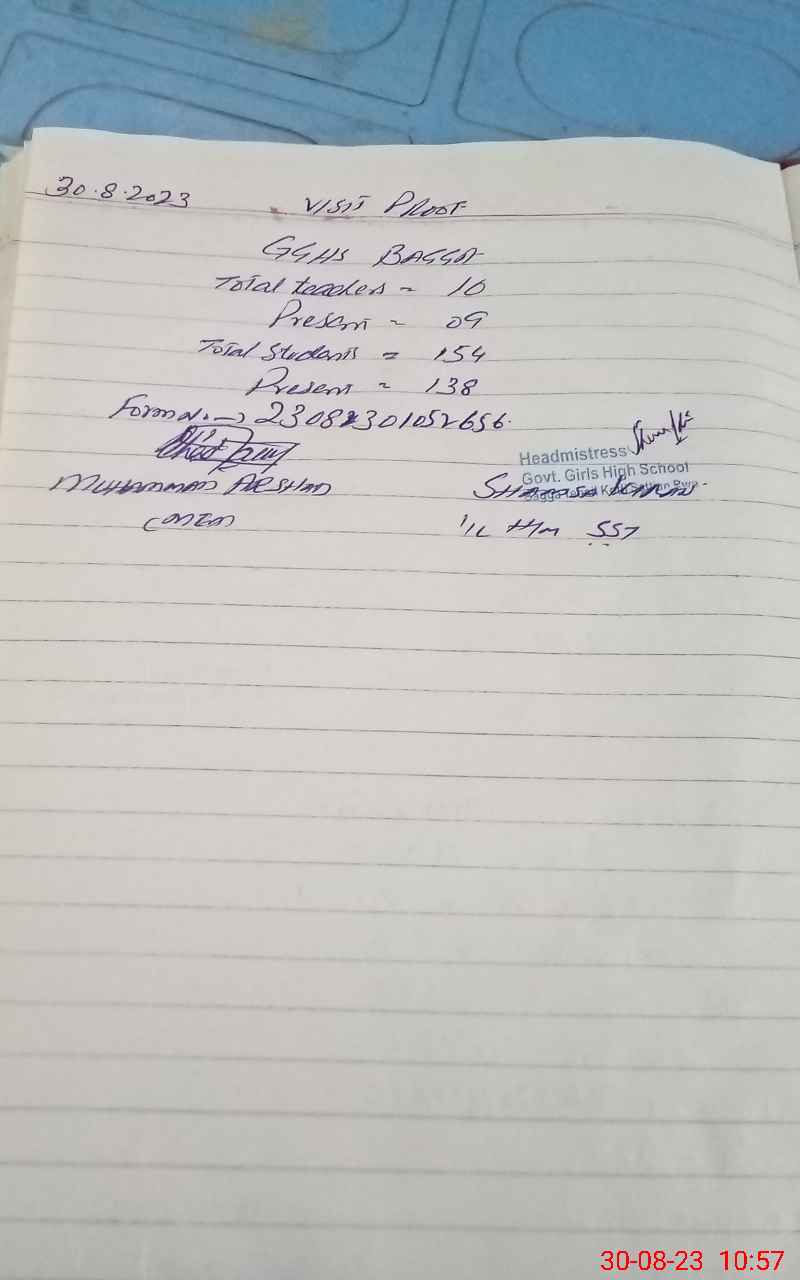 30.8.2023 VISIT PROOF
GGHS BAGGA
Total teachers = 10
Present = 09
Total Students = 154
Present = 138
Form No. → 2308301052656.
Headmistress
Govt. Girls High School
MUHAMMAD ARSHAD
I/C H/M SST
30-08-23 10:57